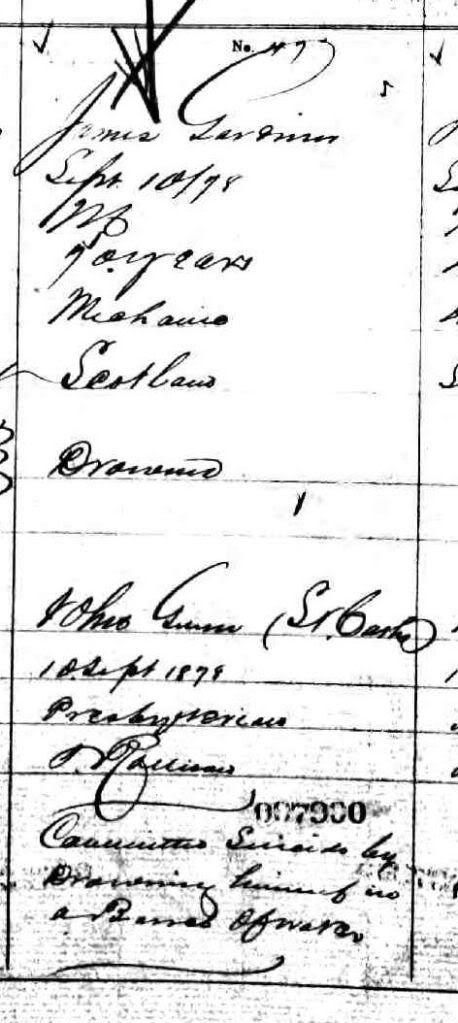 No. 47
James Gardiner
Sept. 10/78
M
70 years
Mechanic
Scotland
Drowned
1
John Gunn (St. Cathe)
10 Sept 1878
Presbyterian
007990
Committed Suicide by
Drowning himself in
a Barrel of water